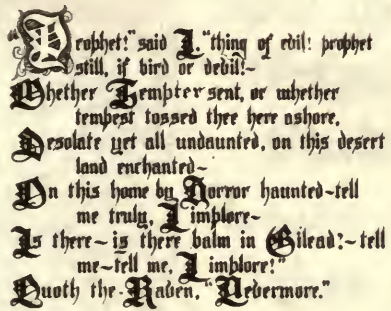 "Prophet!" said I, "thing of evil! prophet
still, if bird or devil!~
Whether Tempter sent, or whether
tempest tossed thee here ashore,
Desolate yet all undaunted, on this desert
land enchanted~
On this home by Horror haunted~tell
me truly, I implore~
Is there~is there balm in Gilead?~tell
me~tell me, I implore!"
Quoth the Raven, "Nevermore."